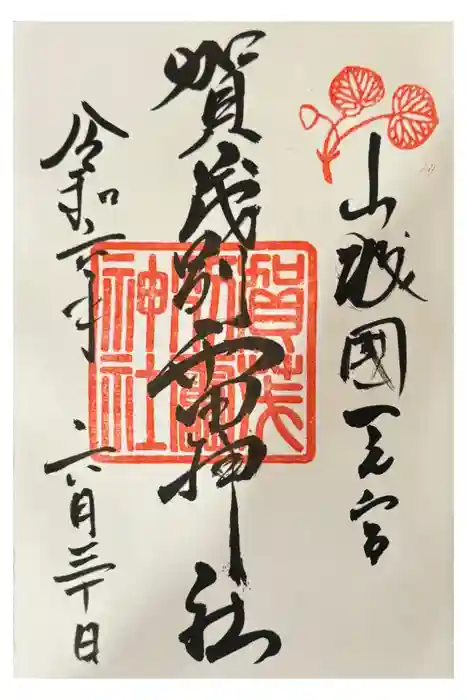 山城國一之宮
賀茂別雷神社
賀茂
別雷
神社
令和六年
六月三十日